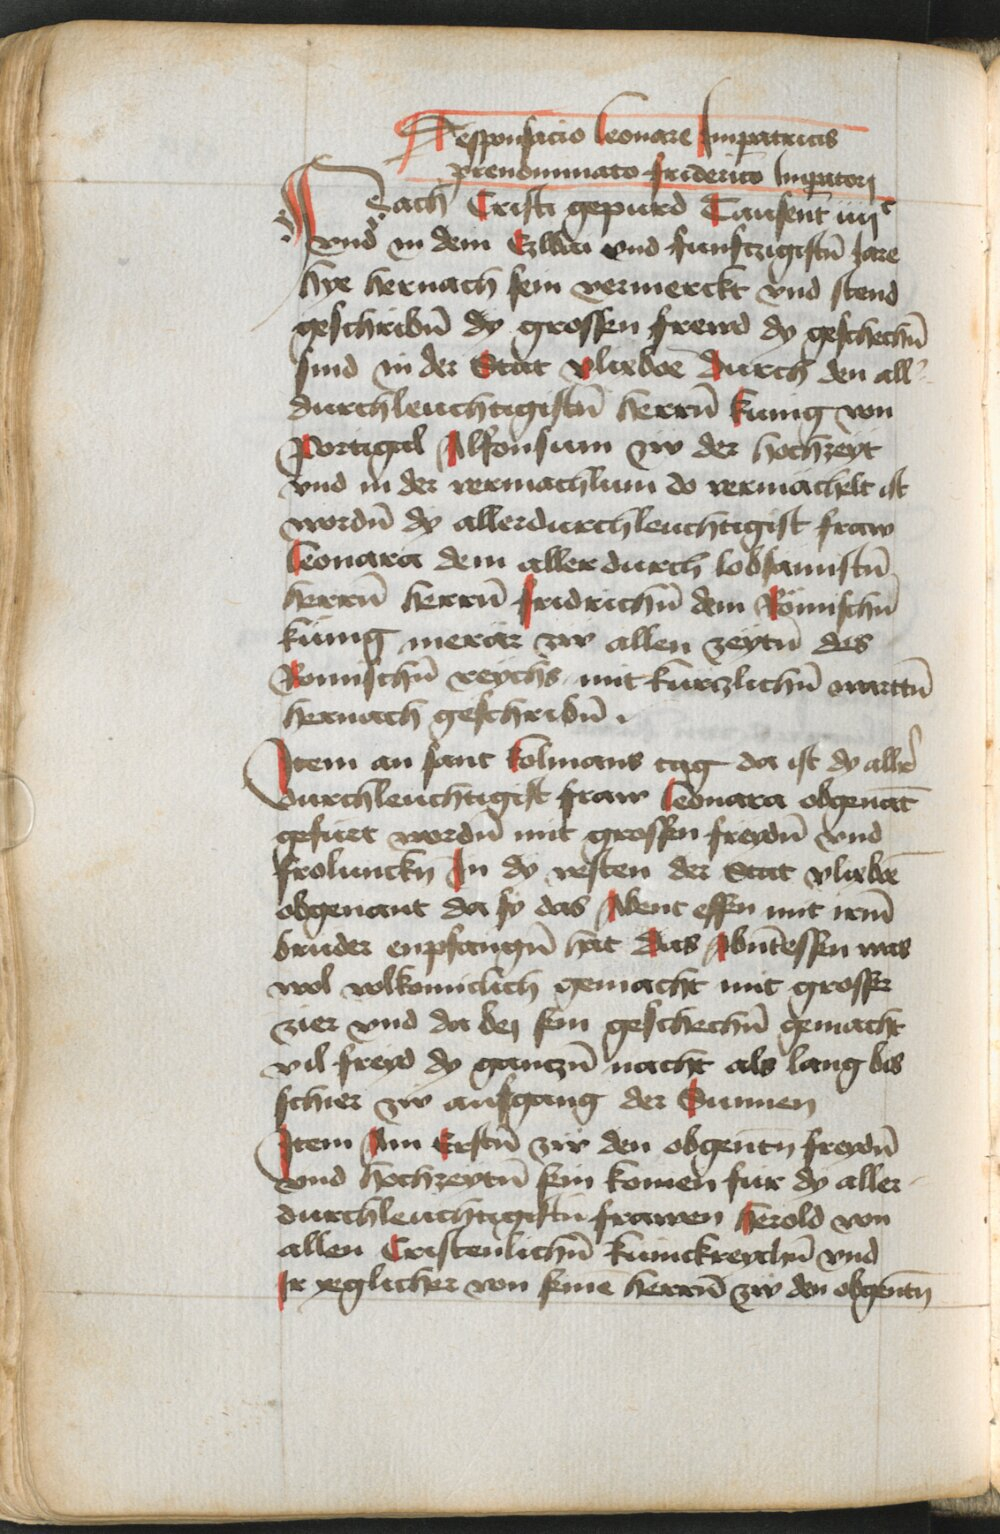 Desponsacio Leonare Imperatricis
prenominato Friderico Imperatori
Nach Cristi gepurd Tausent iiijc
vnd in dem Czwai vnd funfczigistn̄ Jare
hye hernach sein vermerckt vnd stend
geschribn̄ dy grossen frewd dy geschechn̄
sind in der Stat vlixboe durch den all
durchleuchtigistn̄ herrn̄ kunig von
Portigal Alfonsum zw der hochzeyt
vnd in der vermachlum do vermächelt ist
wordn̄ dy allerdurchleuchtigist fraw
Leonara dem allerdurch lobsamistn̄
herrn̄ herrn̄ fridrichn̄ dem Römischn̄
künig merär zw allen zeytn̄ des
Romischn̄ reychs mit kurczlichn̄ warttn̄
hernach geschribn̄ .
Item an sant Kolmans tag da ist dy aller
durchleuchtigist fraw Leonara obgenāt
gefüert wordn̄ mit grossen freydn̄ vnd
froluncky̅ In dy vesten der Stat vlixboē
obgenant da sy das Abent essen mit irm̄
bruder enpfangn̄ hat Das Abn̄tessen was
wol volkomiclich gemacht mit grosser
zier vnd da bej sein geschechn̄ gemacht
vil freyd dy ganczn̄ nacht als lang bis
schier zw aufgang der Sunnen
Item Am Erstn̄ zw den obgentn̄ freydn̄
vnd hochzeytn̄ sein komen für dy aller
durchleuchtigistn̄ frawen herold von
allen Cristenlichn̄ kunickreychn̄ vnd
Ir yeglicher von seinē herrn̄ zw den obgentn̄